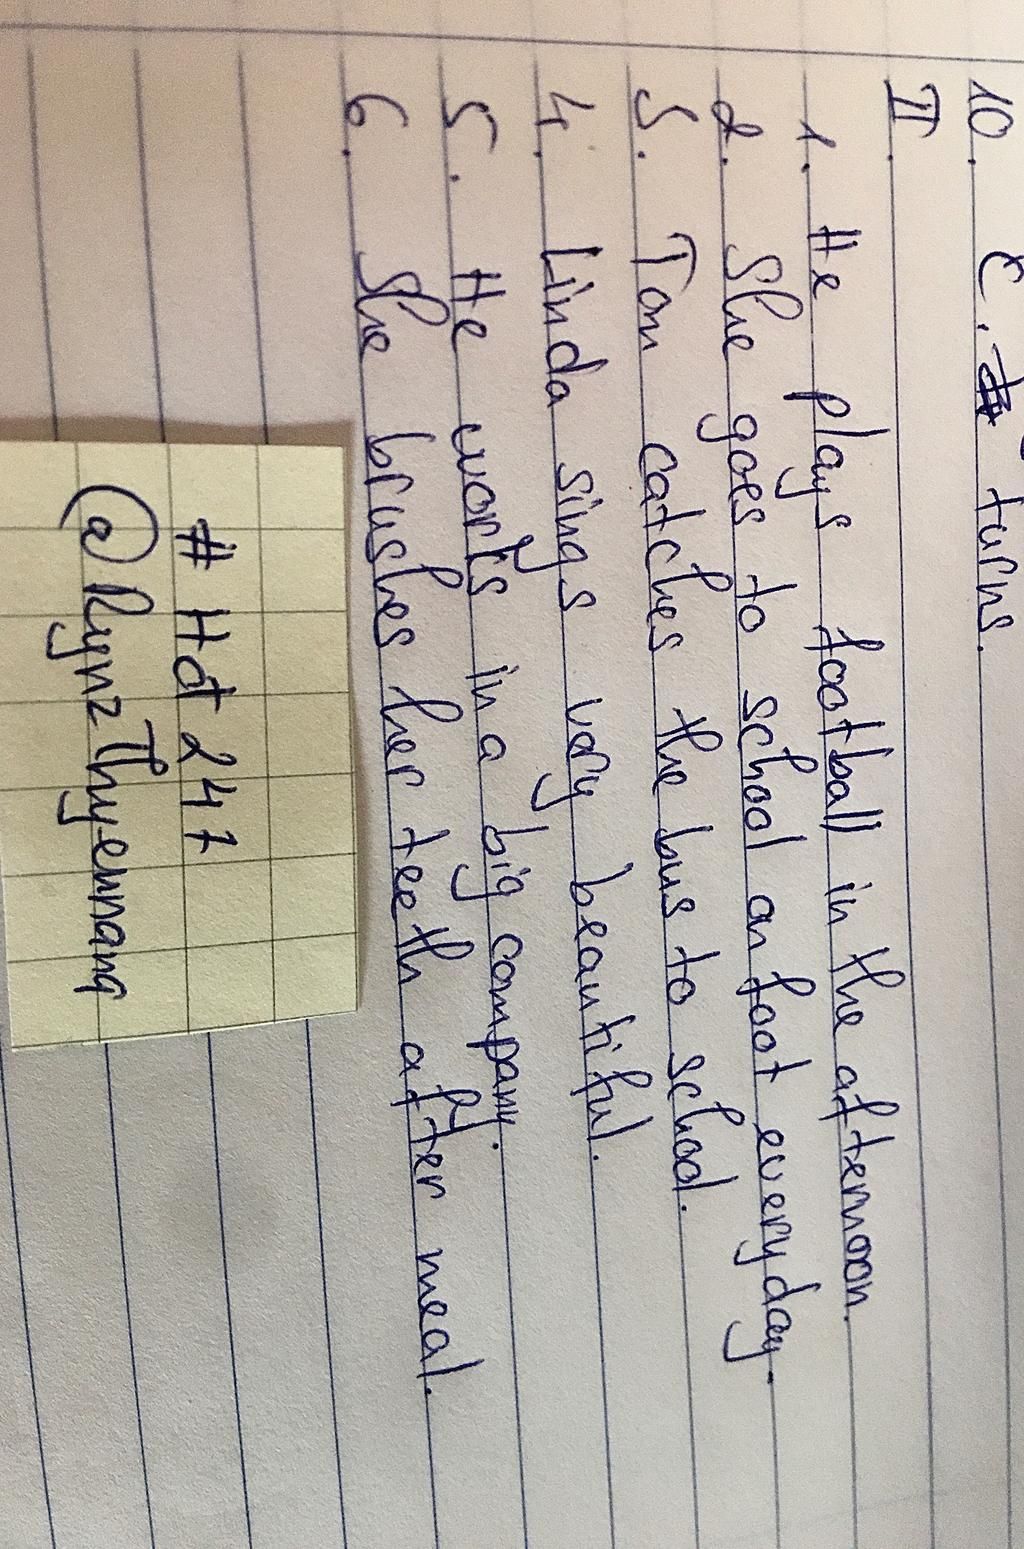 10. C. turns.
II.
1. He plays football in the afternoon.
2. She goes to school on foot everyday.
3. Tom catches the bus to school.
4. Linda sings very beautiful.
5. He works in a big company.
6. She brushes her teeth after meal.
# Hđ 247
@RynzThyennang